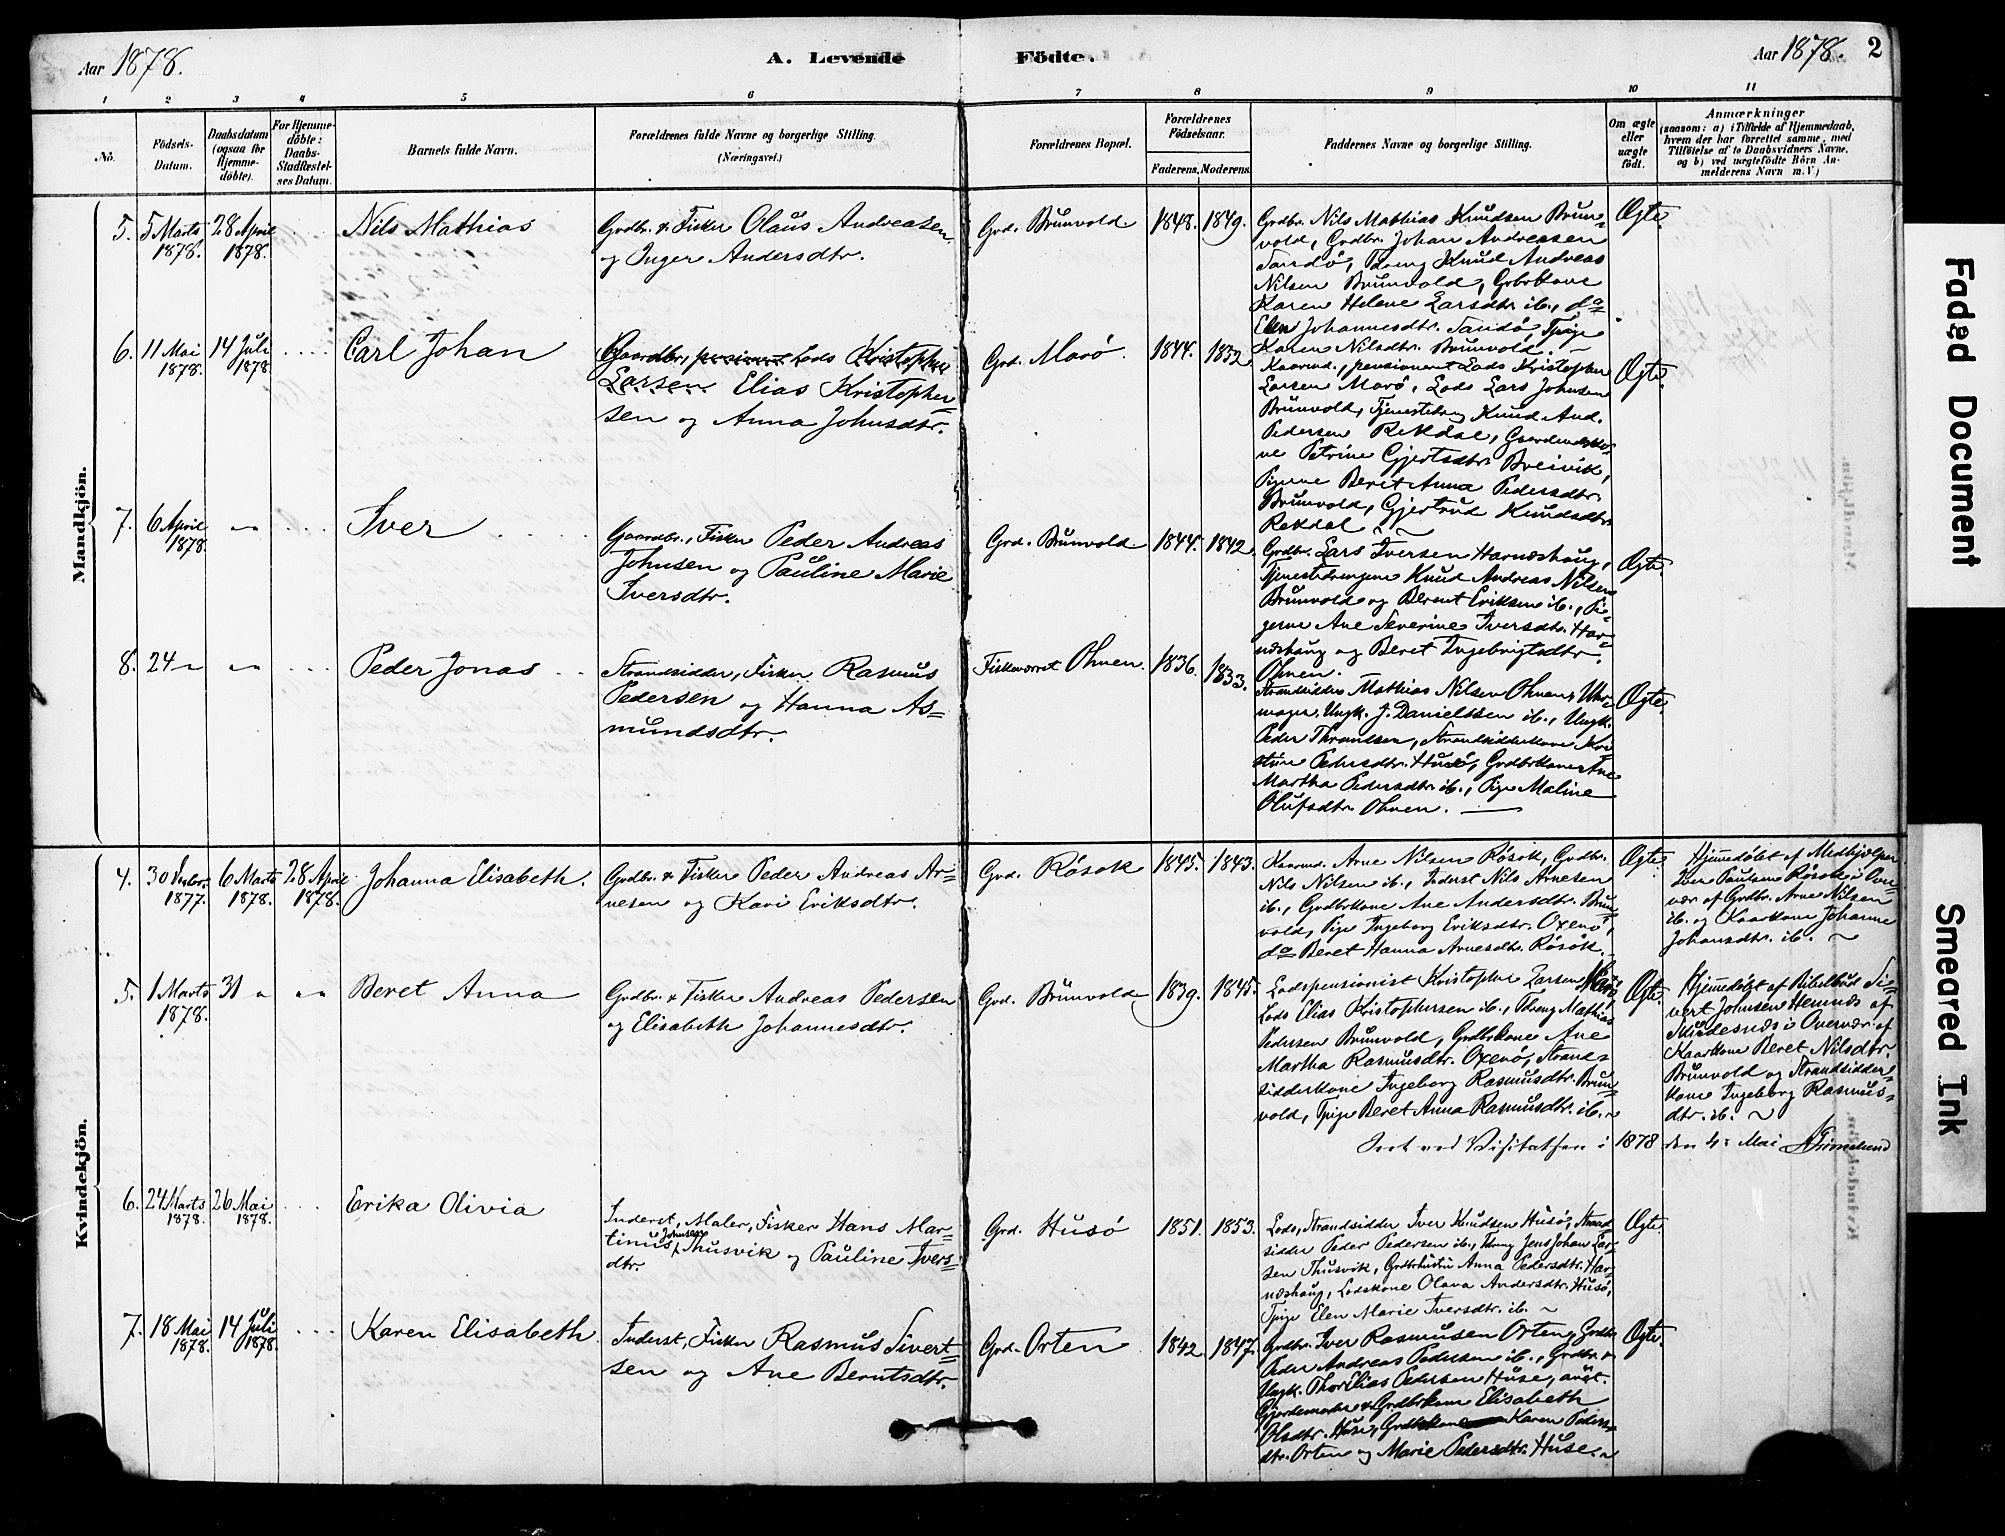 Aar 1878.
A. Levende Födte.
Aar 1878. 2
1 2 3 4 5 6 7 8 9 10 11
No.
Födsels-
Datum.
Daabsdatum
(ogsaa for
Hjemme-
döbte).
For Hjemme-
döbte:
Daabs-
Stadfæstel-
ses Datum.
Barnets fulde Navn.
Forældrenes fulde Navne og borgerlige Stilling.
(Næringsvei.)
Forældrenes Bopæl.
Forældrenes
Födselsaar.
Faderens. Moderens.
Faddernes Navne og borgerlige Stilling.
Om ægte
eller
uægte
födt.
Anmærkninger
(saasom: a) i Tilfælde af Hjemmedaab,
hvem der har forrettet samme, med
Tilföielse af to Daabsvidners Navne,
og b) ved uægtefödte Börn An-
melderens Navn m. V.)
Mandkjön.
5. 5 Marts
1878.
28 April
1878.
Nils Mathias
Grdbr. & Fisker Olaus Andreasen
og Inger Andersdtr.
Grd. Brunvold
1848. 1849.
Grdbr. Nils Mathias Knudsen Brun-
vold, Grdbr. Johan Andreasen
Sandö, Dreng Knud Andreas
Nilsen Brunvold, Grbrkone
Karen Helene Larsdtr. ib., do
Elen Johannesdtr. Sandö, Pige
Karen Nilsdtr. Brunvold.
Ægte.
6. 11 Mai
1878.
14 Juli
1878.
Carl Johan
Gaardbr., pensioneret Lods Kristopher
Larsen Elias Kristopher-
sen og Anna Johnsdtr.
Grd. Marö.
1844. 1832.
Kaarmd., pensioneret Lods Kristopher
Larsen Marö, Lods Lars Johnsen
Brunvold, Tjenestedreng Knud And.
Pedersen Rekdal, Gaardmandsko-
ne Petrine Gjertsdtr. Breivik,
Pigerne Beret Anna Pedersdtr.
Brunvold, Gjertrud Knudsdtr.
Rekdal
Ægte.
7. 6 April
1878.
Iver
Gaardbr., Fisker Peder Andreas
Johnsen og Pauline Marie
Iversdtr.
Grd. Brunvold
1844. 1842.
Grdbr. Lars Iversen Harnæshaug,
Tjenestedrengene Knud Andreas Nilsen
Brunvold og Berent Eriksen ib., Pi-
gerne Ane Severine Iversdtr. Har-
næshaug og Beret Ingebrigtsdtr.
Ohnen.
Ægte.
8. 24 "
Peder Jonas
Strandsidder, Fisker Rasmus
Pedersen og Hanna As-
mundsdtr.
Fiskeværet Ohnen.
1836. 1833.
Strandsidder Mathias Nilsen Ohnen, Uhr-
mager, Ungk. J. Danielssen ib., Ungk.
Peder Thrandsen, Strandsidderkone Kri-
stine Pedersdtr. Husö, Grdbrkone Ane
Martha Pedersdtr. ib., Pige Maline
Olufsdtr. Ohnen.
Ægte.
Kvindekjön.
4. 30
1877.
6 Marts
1878.
28 April
1878.
Johanna Elisabeth.
Grdbr. & Fisker Peder Andreas Ar-
nesen og Kari Eriksdtr.
Grd. Rösok
1845. 1843.
Kaarmd. Arne Nilsen Rösok, Grdbr.
Nils Nilsen ib., Inderst Nils Arnesen
ib., Grdbrkone Ane Andersdtr. Brun-
vold, Pige Ingeborg Eriksdtr. Oxenö,
do Beret Hanna Arnesdtr. Rösok.
Ægte.
Hjemedöbt af Medhjælper
Iver Paulsen Rösok i Over-
vær af Grdbr. Arne Nilsen
ib. og Kaarkone Johanne
Johansdtr. ib.
5. 1 Marts
1878.
31 "
Beret Anna
Grdbr. & Fisker Andreas Pedersen
og Elisabeth Johannesdtr.
Grd. Brunvold
1839. 1845.
Lodspensionist Kristopher Larsen Marö,
Lods Elias Kristophersen ib., Dreng Mathias
Pedersen Brunvold, Grdbrkone Ane
Martha Rasmusdtr. Oxenö, Strand-
sidderkone Ingeborg Rasmusdtr. Brun-
vold, Pige Beret Anna Rasmusdtr. ib.
Ægte.
Hjemedöbt af Bibelbud Si-
vert Johnsen Hemnæs af
i Overvær af
Kaarkone Beret Nilsdtr.
Brunvold og Strandsidder-
kone Ingeborg Rasmus-
dtr. ib.
ved Visitatsen i 1878 den 4. Mai Grimelund
6. 24 Marts
1878.
26 Mai
1878.
Erika Olivia
Inderst, Maler, Fisker Hans Mar-
tinus Johnsen Thusvik og Pauline Ivers-
dtr.
Grd. Husö
1851. 1853.
Lods, Strandsidder Iver Knudsen Husö, Strand-
sidder Peder Pedersen ib., Dreng Jens Johan Lar-
sen Thusvik, Grdbrhustru Anna Pedersdtr. Har-
næshaug, Lodskone Olava Andersdtr. Husö,
Pige Elen Marie Iversdtr. ib.
Ægte.
7. 18 Mai
1878.
14 Juli
1878.
Karen Elisabeth
Inderst, Fisker Rasmus Sivert-
sen og Ane Berntsdtr.
Grd. Orten
1842 1847.
Grdbr. Iver Rasmusen Orten, Grdbr.
Peder Andreas Pedersen ib., Grdbr. &
Ungk. Thor Elias Pedersen Huse,
Gjordemoder & Grdbrkone Elisabeth
Olsdtr. Huse, Grdbrkone Karen Peders-
dtr. Orten og Marie Pedersdtr. Huse.
Ægte.
Faded Document
Smeared Ink